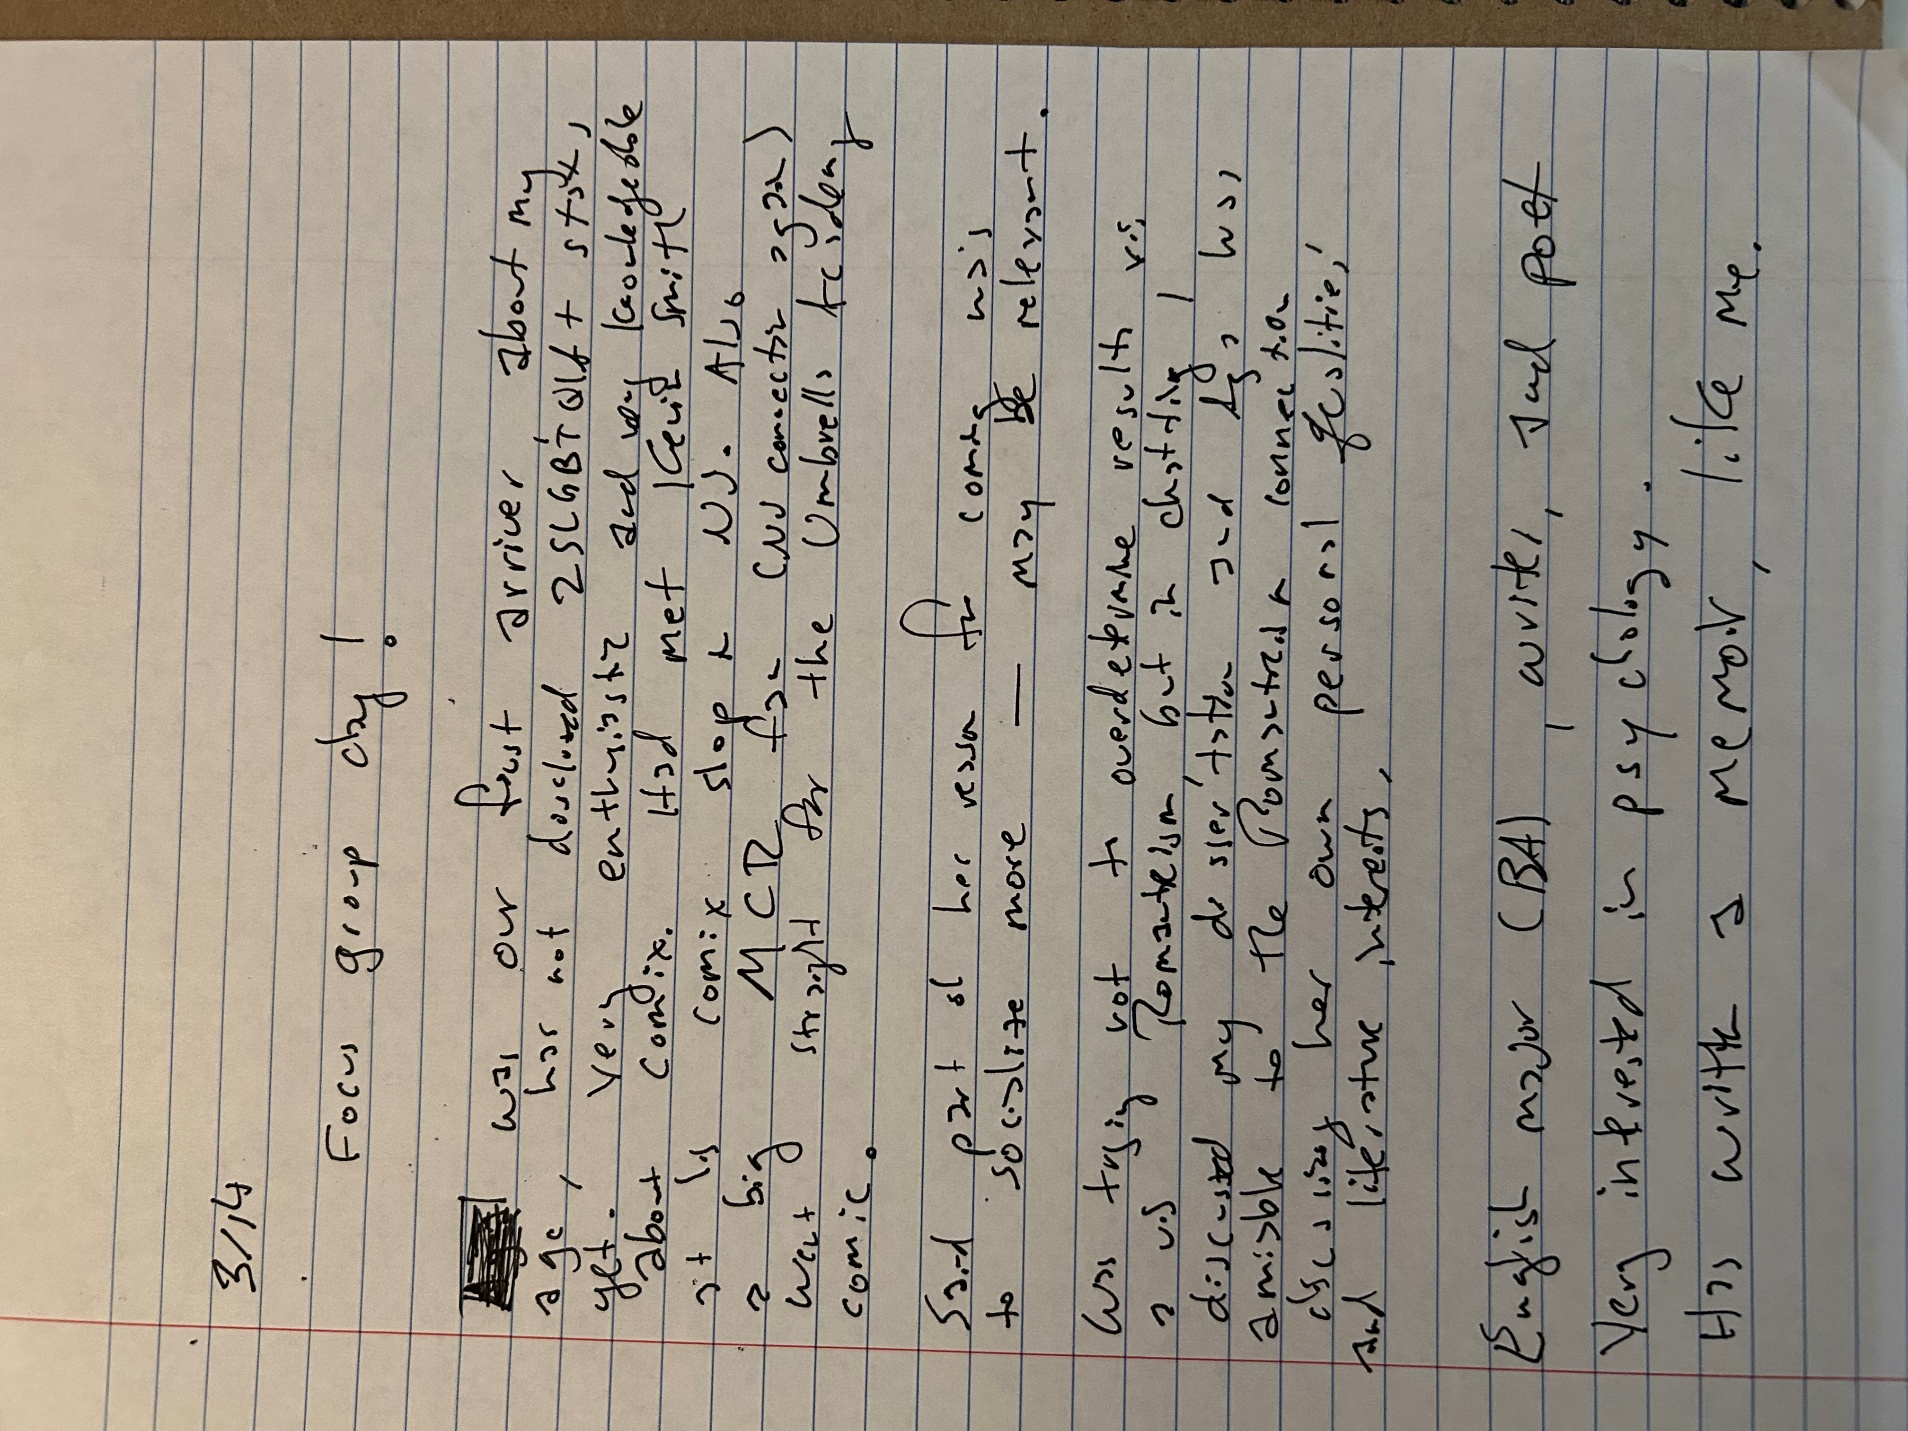 3/14
Focus group day!
was our first arriver about my
age, has not disclosed 2SLGBTQIA+ stat,
yet. Very enthusiastic and very knowledgeable
about comix. Had met Kevin Smith
at his comix shop in NJ. Also
a big MCR fan (NJ connection again)
went straight for the Umbrella Academy
comic.
Said part of her reason for coming was
to socialize more — may be relevant.
Was trying not to overdetermine results vis
a vis Romanticism but in chatting I
discussed my dissertation and Aga was
amiable to the Romanticism connection
discussing her own personal qualities,
and literature interests,
English major (BA), writer, and poet
Very interested in psychology.
Has written a memoir, like me.